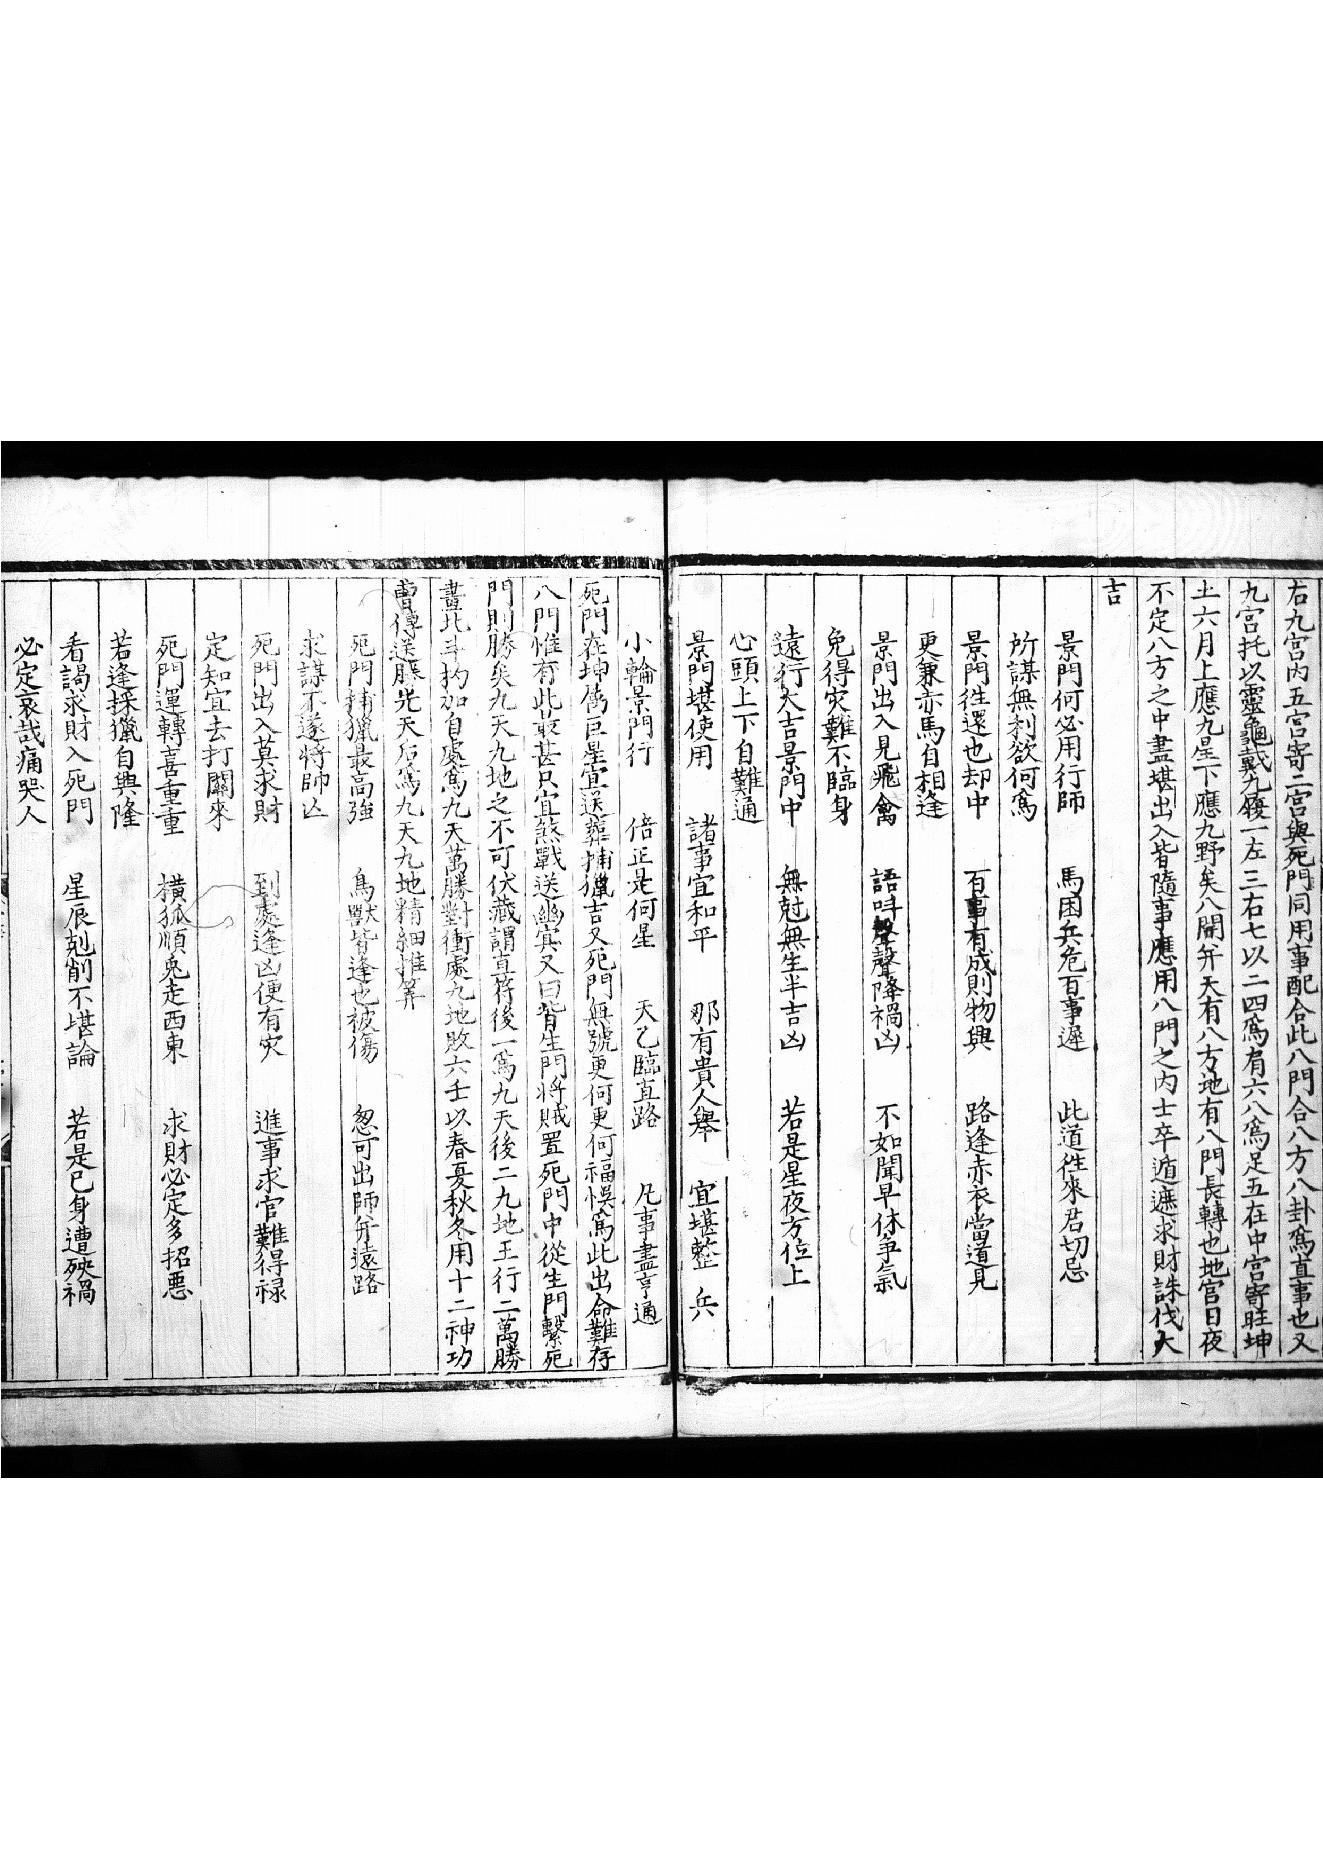 右九宮內五宮寄二宮與死門同用事配合此八門合八方八卦爲直事也又
九宮托以靈龜戴九履一左三右七以二四爲肩六八爲足五在中宮寄旺坤
土六月上應九星下應九野矣八開弁天有八方地有八門長轉也地宮日夜
不定八方之中盡堪出入皆隨事應用八門之内士卒遁遮求財誅伐大
吉
景門何必用行師 馬困兵危百事遲 此道徃來君切忌
所謀無利欲何爲
景門徃還也却中 百事有成則物興 路逢赤衣當道見
更兼赤馬自相逢
景門出入見飛禽 語呌聲聲降禍凶 不如聞早休爭氣
免得灾難不臨身
遠行大吉景門中 無尅無生半吉凶 若是星夜方位上
心頭上下自難通
景門堪使用 諸事宜和平 那有貴人舉 宜堪整兵
小輪景門行 倍正是何星 天乙臨直路 凡事盡亨通
死門在坤爲巨星宜送葬捕獵吉又死門無號更何更何福悞爲此出命難存
八門惟有此最甚只宜煞戰送幽冥又曰背生門將賊置死門中從生門繫死
門則勝矣九天九地之不可伏藏謂直符後一爲九天後二九地王行二萬勝
畫北斗扚加自處爲九天萬勝對衝處九地敗六壬以春夏秋冬用十二神功
曹傳送勝光天后爲九天九地精細推筭
死門捕獵最高強 鳥獸皆逢也被傷 怱可出師弁遠路
求謀不遂將帥凶
死門出入莫求財 到處逢凶便有灾 進事求官難得禄
定知宜去打關來
死門運轉喜重重 橫狐順兎走西東 求財必定多招惡
若逢採獵自興隆
看謁求財入死門 星辰剋削不堪論 若是已身遭殃禍
必定哀哉痛哭人